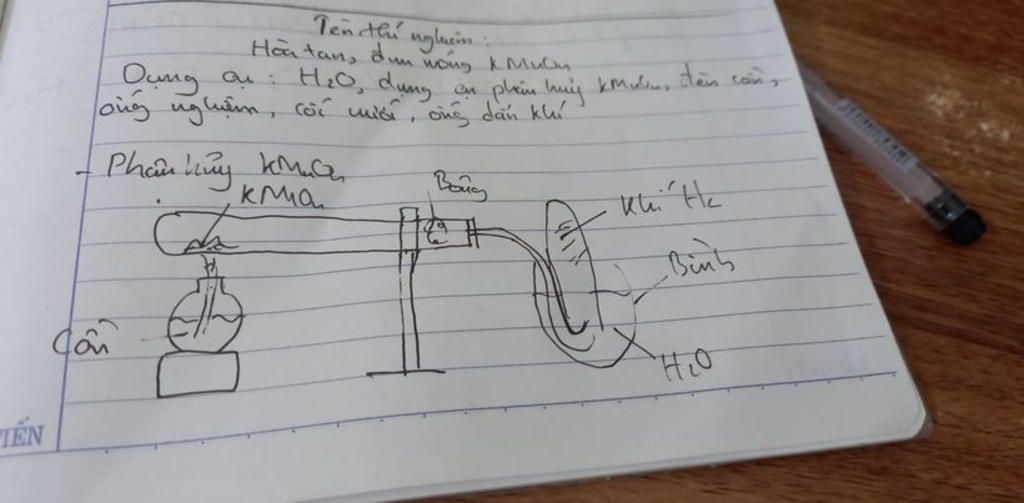 Tên thí nghiệm:
Hòa tan, đun nóng KMnO4
Dụng cụ: H2O, dụng cụ phân hủy KMnO4, đèn cồn,
ống nghiệm, cốc, ống dẫn khí
- Phân hủy KMnO4
KMnO4
Bông
Khí H2
Bình
Cồn
H2O
TIẾN